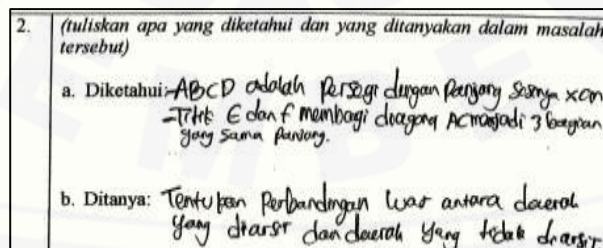 2. (tuliskan apa yang diketahui dan yang ditanyakan dalam masalah
tersebut)
a. Diketahui: - ABCD adalah Persegi dengan Panjang Sisinya x cm
- Titik E dan F membagi diagonal AC menjadi 3 bagian
yang sama panjang.
b. Ditanya: Tentukan Perbandingan luas antara daerah
yang diarsir dan daerah yang tidak diarsir